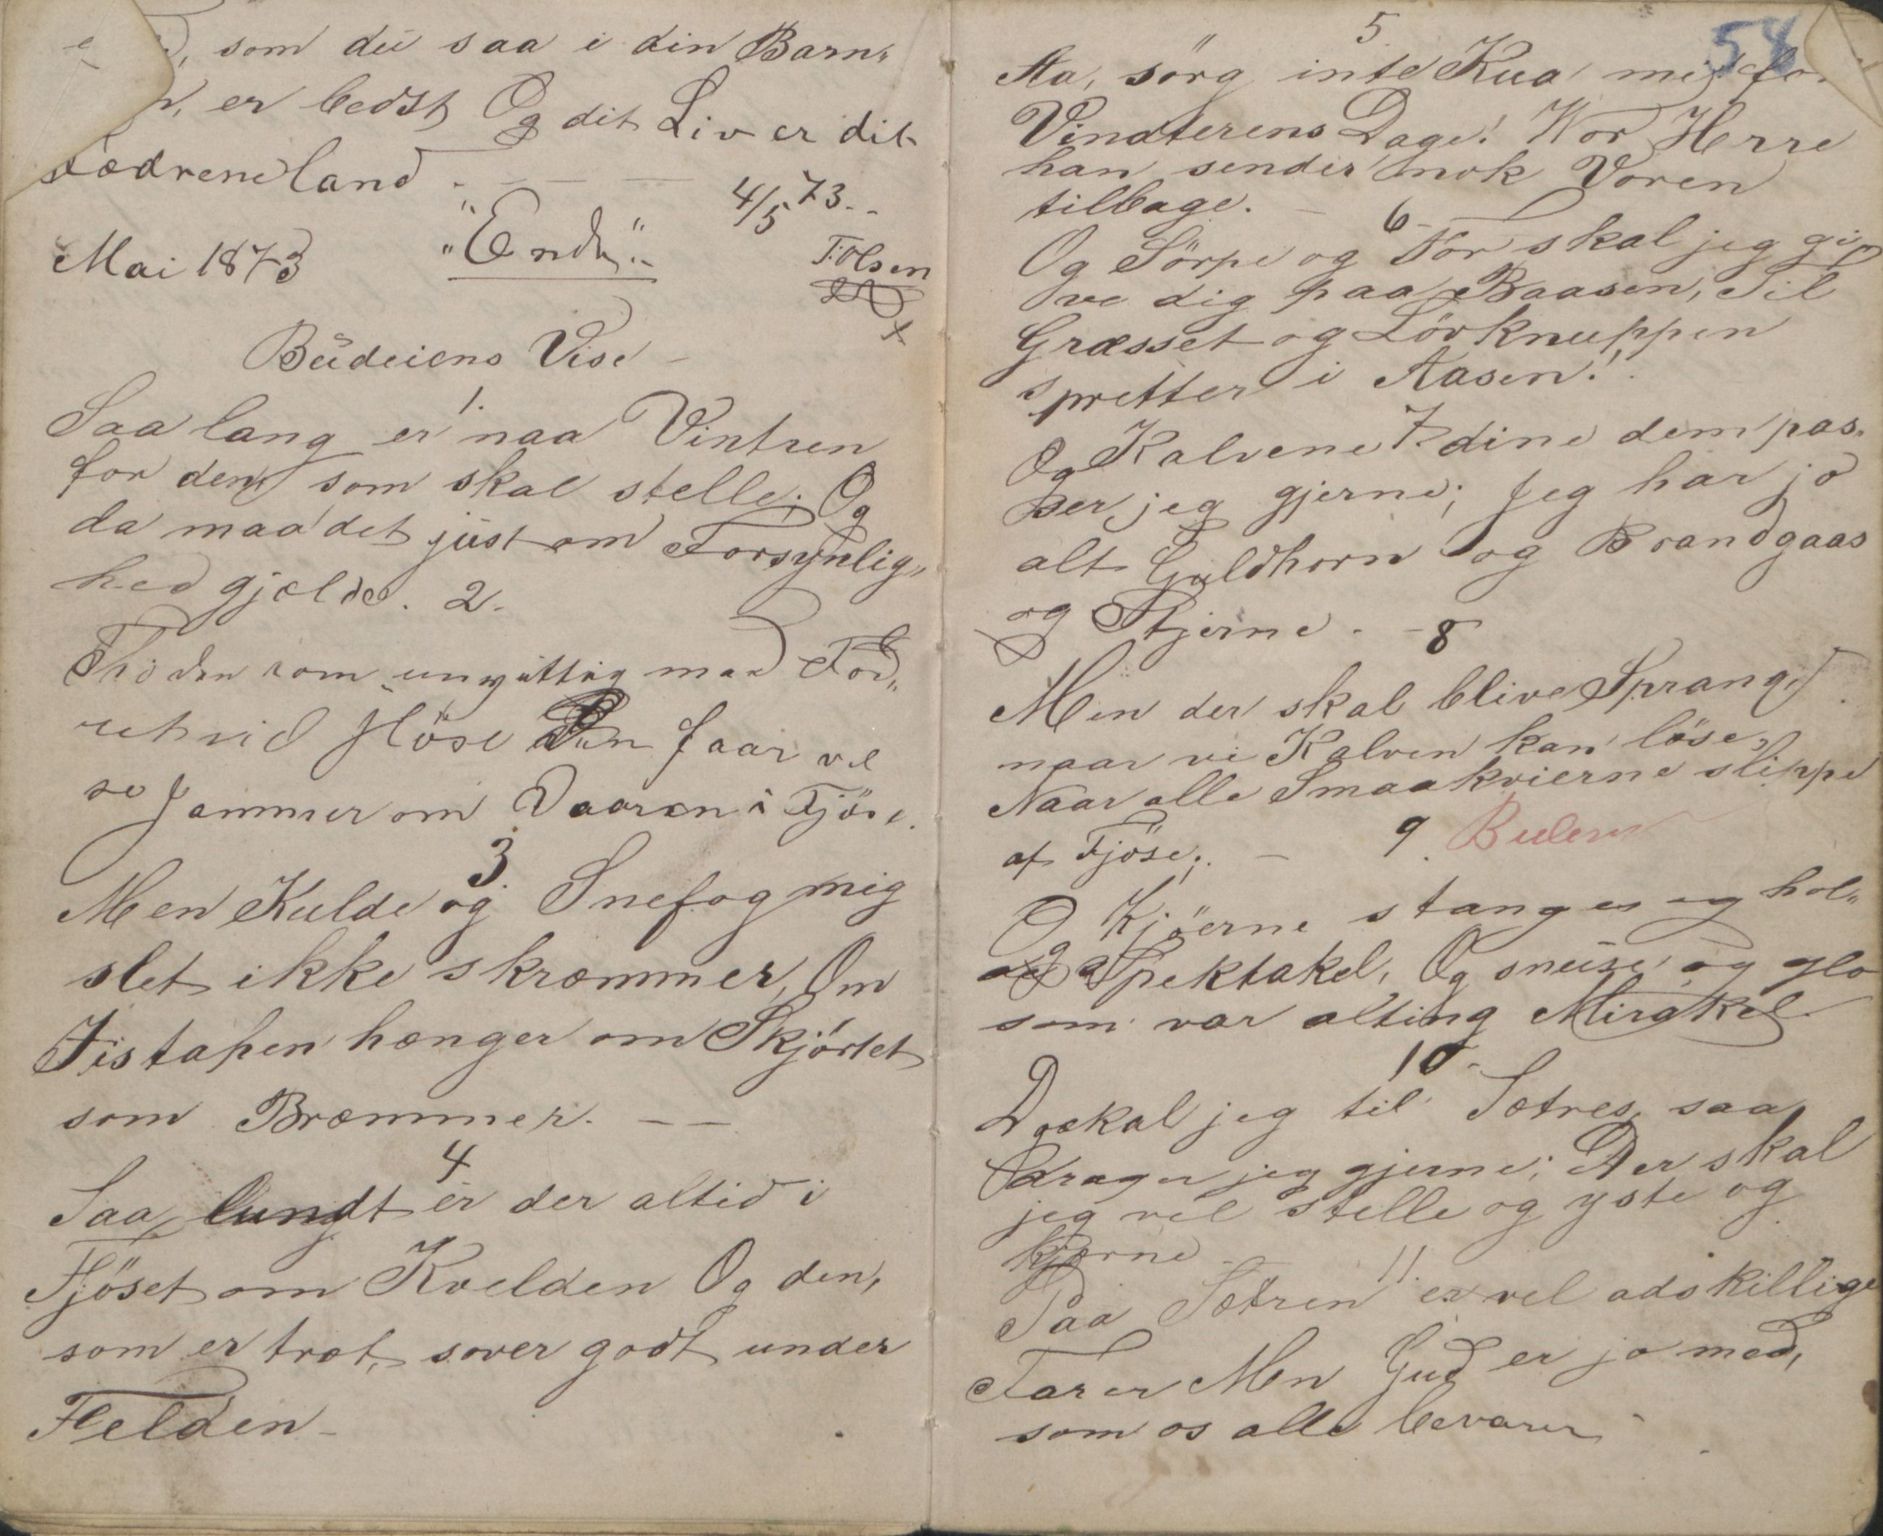 som du saa i din Barn„
er bedst Og dit Liv er dit
Fædreneland
4/5 73.
Mai 1873 „Ende“
T. Olsen
Budeiens Vise
1.
Saa lang er naa Vintren
for den, som skal stelle; Og
da maa det just om Forsynlig„
hed gjælde. 2.
Thi den som unyttig med Fod„
ret vil Höse Den faar vel
se Jammer om Vaaren i Fjöse.
3.
Men Kulde og Snefog mig
slet ikke skræmmer, Om
Iistapen hænger om Skjörtet
som Bræmmer.
4
Saa lundt er der altid i
Fjöset om Kvelden Og den,
som er træt, sover godt under
Felden
58
5
Aa, sörg inte Kua mi for
Vindterens Dage! Vor Herre
han sender nok Voren
tilbage.
6
Og Sörpe og For skal jeg gi„
ve dig paa Baasen, Til
Græsset og Lövknuppen
spretter i Aasen!
7
Og Kalvene dine dem pas„
ser jeg gjerne; Jeg har jo
alt Guldhorn og Brandgaas
og Stjerne.
8
Men der skal blive Sprang
naar vi Kalven kan löse,
Naar alle Smaakvierne slippe
af Fjöse;
9.
Og Kjöerne stanges og hol„
Spektakel, Og sneise og glo
som var alting Mirakel
10
Da skal jeg til Sætres, saa
drager jeg gjerne; Der skal
jeg vel stelle og yste og
kjærne
11
Paa Sætren er vel adskillige
Farer Men Gud er jo med,
som os alle bevarer